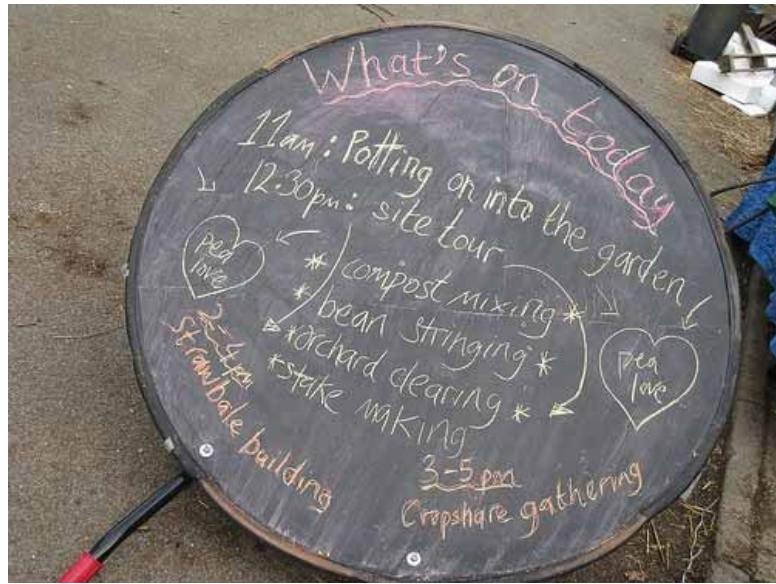 What's on today
11am: Potting on into the garden
12.30pm: site tour
pea
love
* compost mixing *
* bean stringing *
* orchard clearing *
* stake making
pea
love
2-4pm
strawbale building
3-5pm
Cropshare gathering